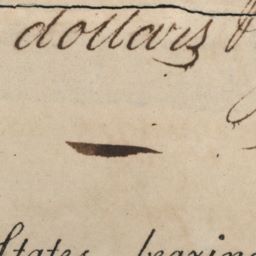 dollars
States bearing